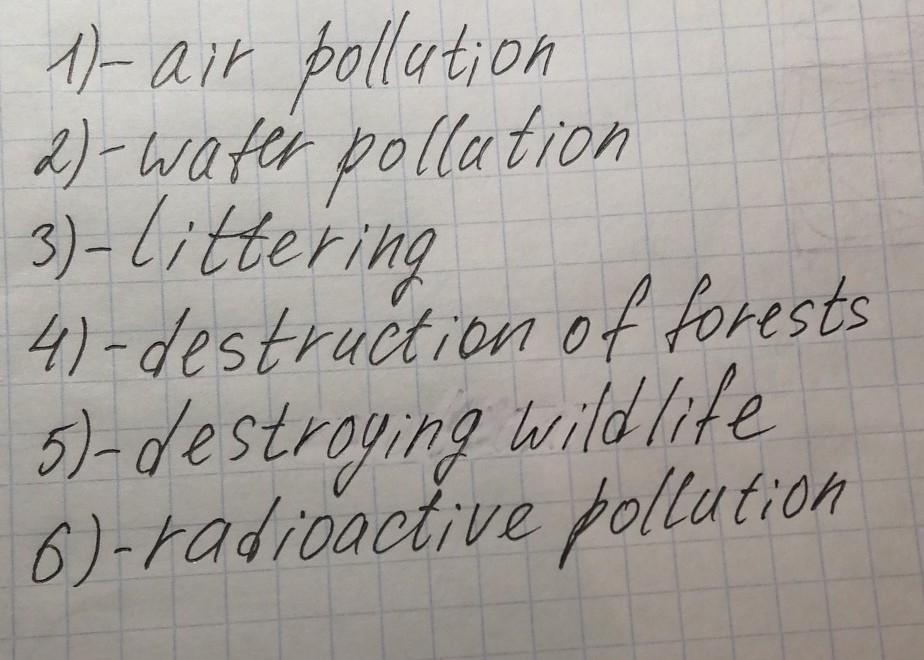 1)- air pollution
2)- water pollution
3)- littering
4)- destruction of forests
5)- destroying wildlife
6)- radioactive pollution